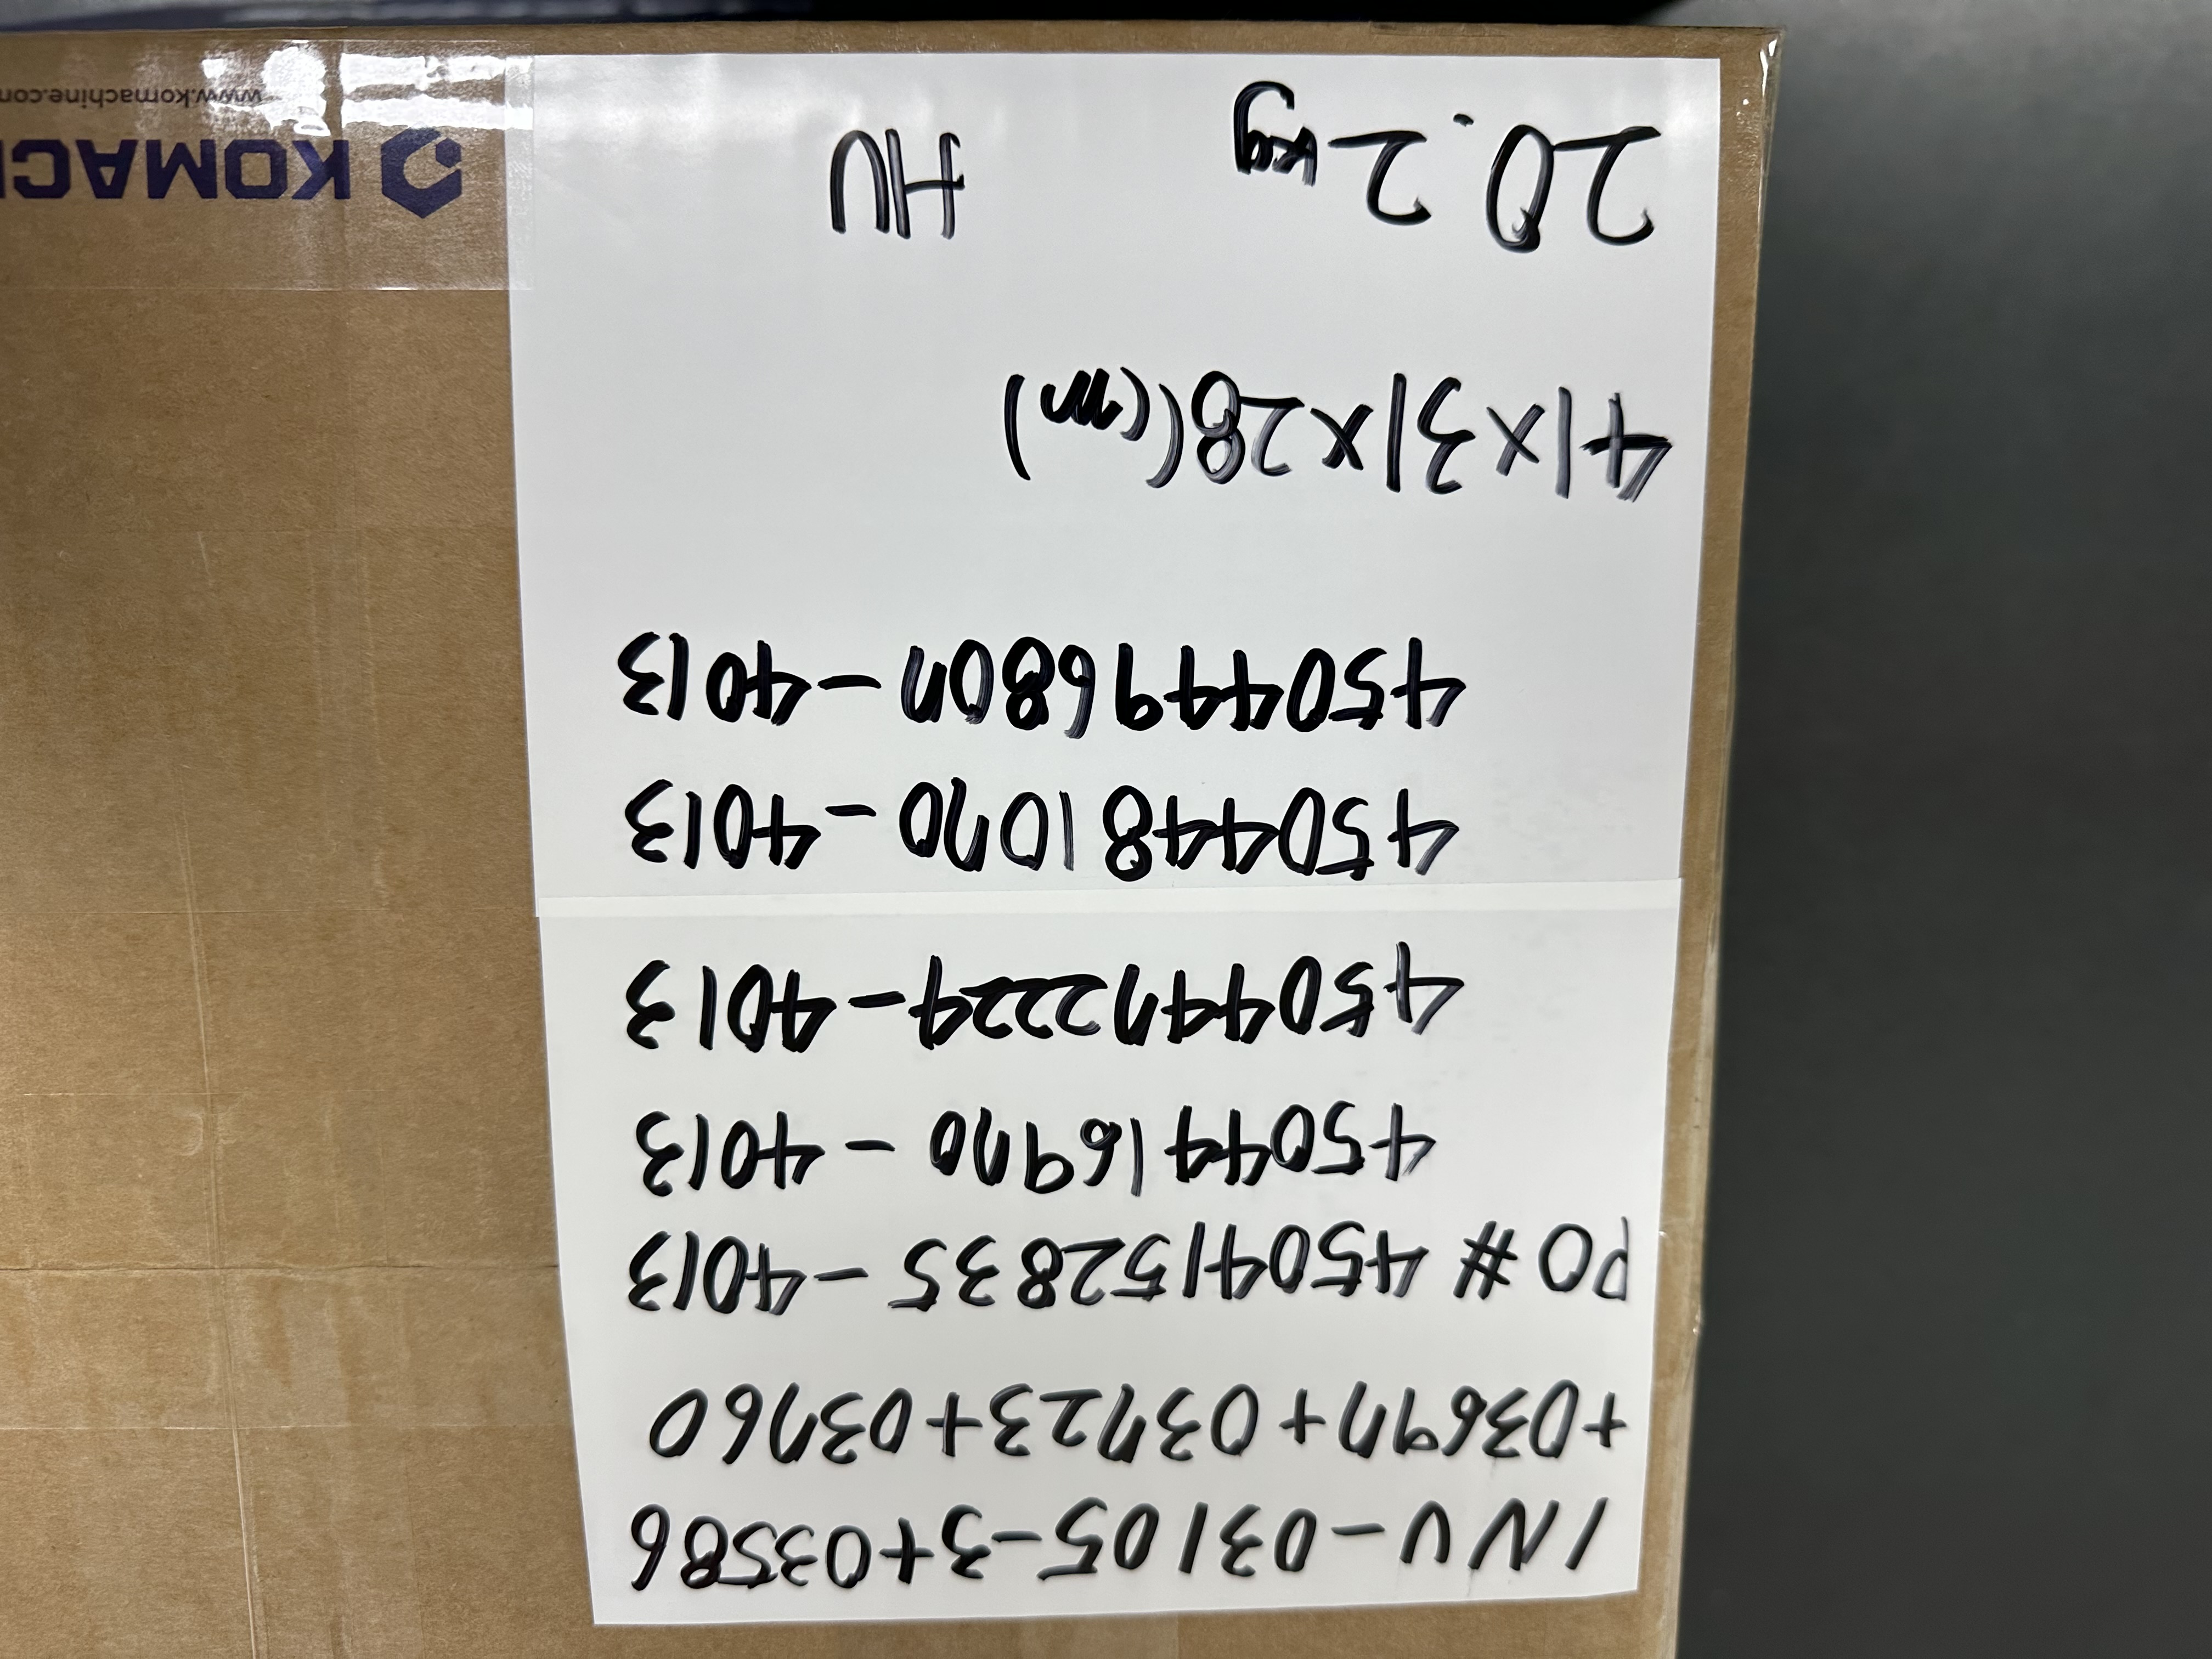 INV-03105-3+03586
+03697+03723+03760
PO # 4504152835-4013
4504416970-4013
4504472224-4013
4504481070-4013
4504496807-4013
41x31x28(cm)
20.2kg HU
KOMAC
www.komachine.co